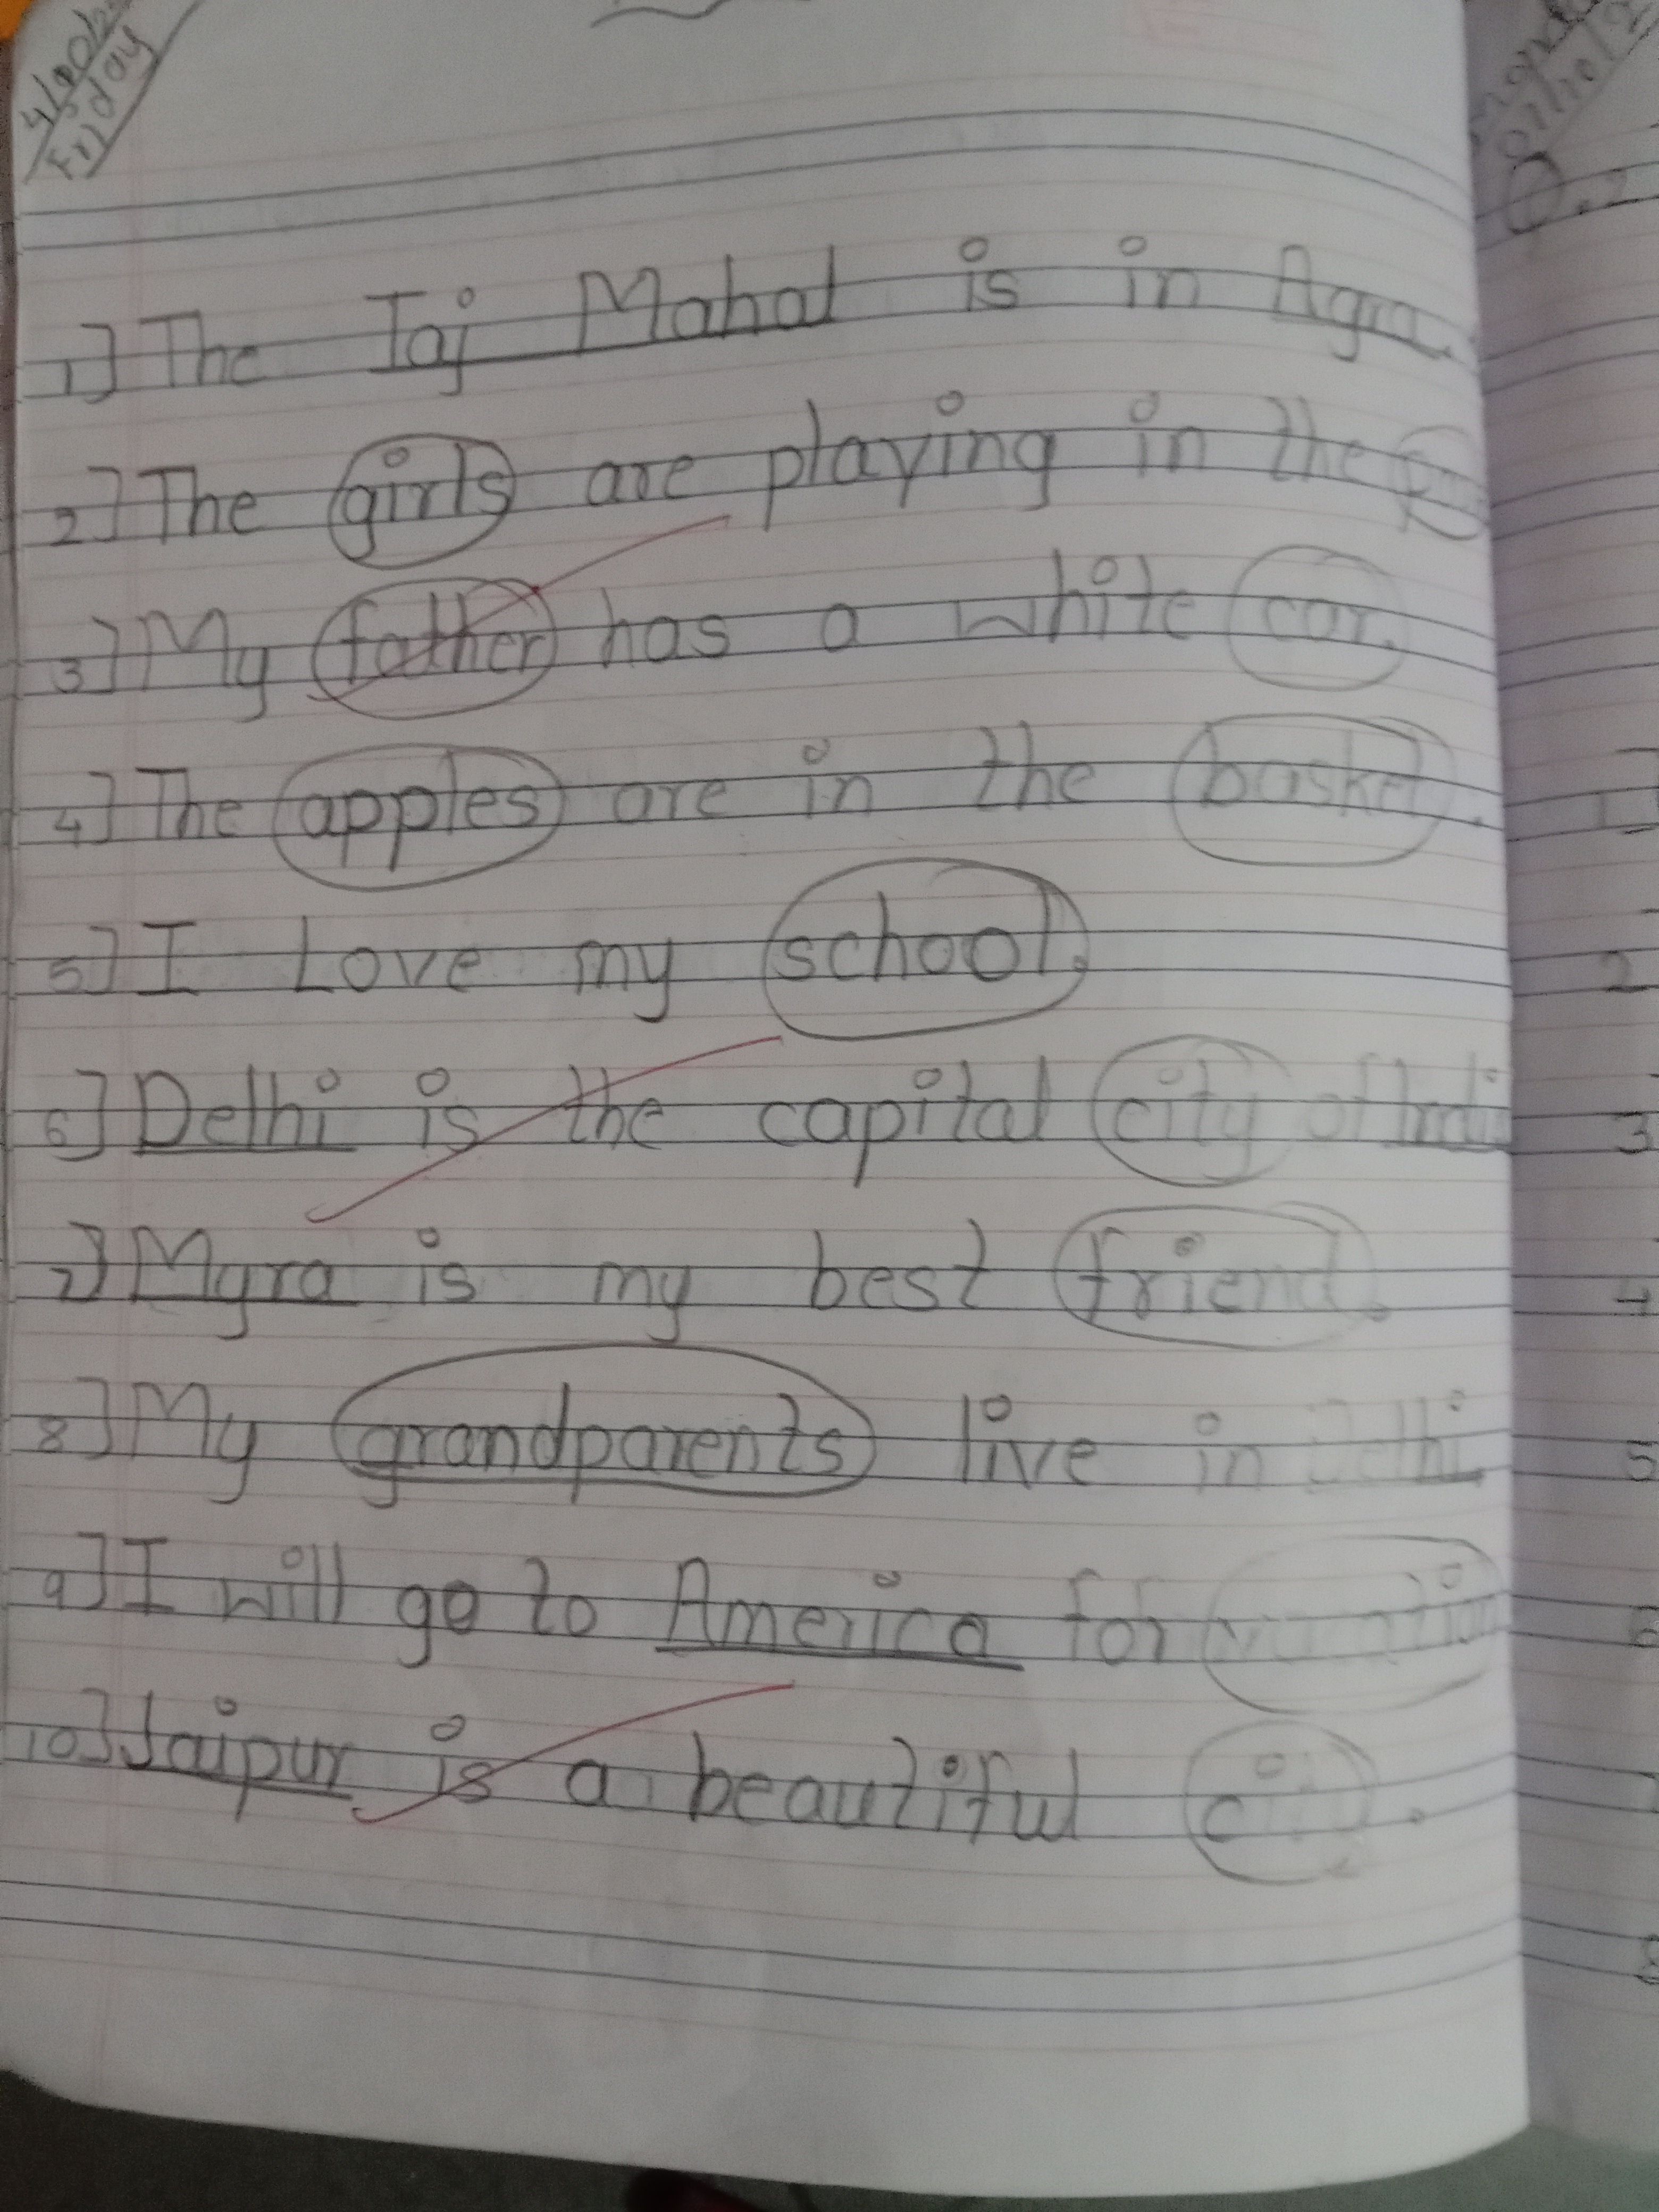 Friday
1] The Taj Mahal is in Agra.
2] The girls are playing in the
3] My father has a white car.
4] The apples are in the basket.
5] I Love my school.
6] Delhi is the capital city of India
7] Myra is my best friend.
8] My grandparents live in Delhi
9] I will go to America for vacation
10] Jaipur is a beautiful city.
1
2
3
4
5
6
7
8